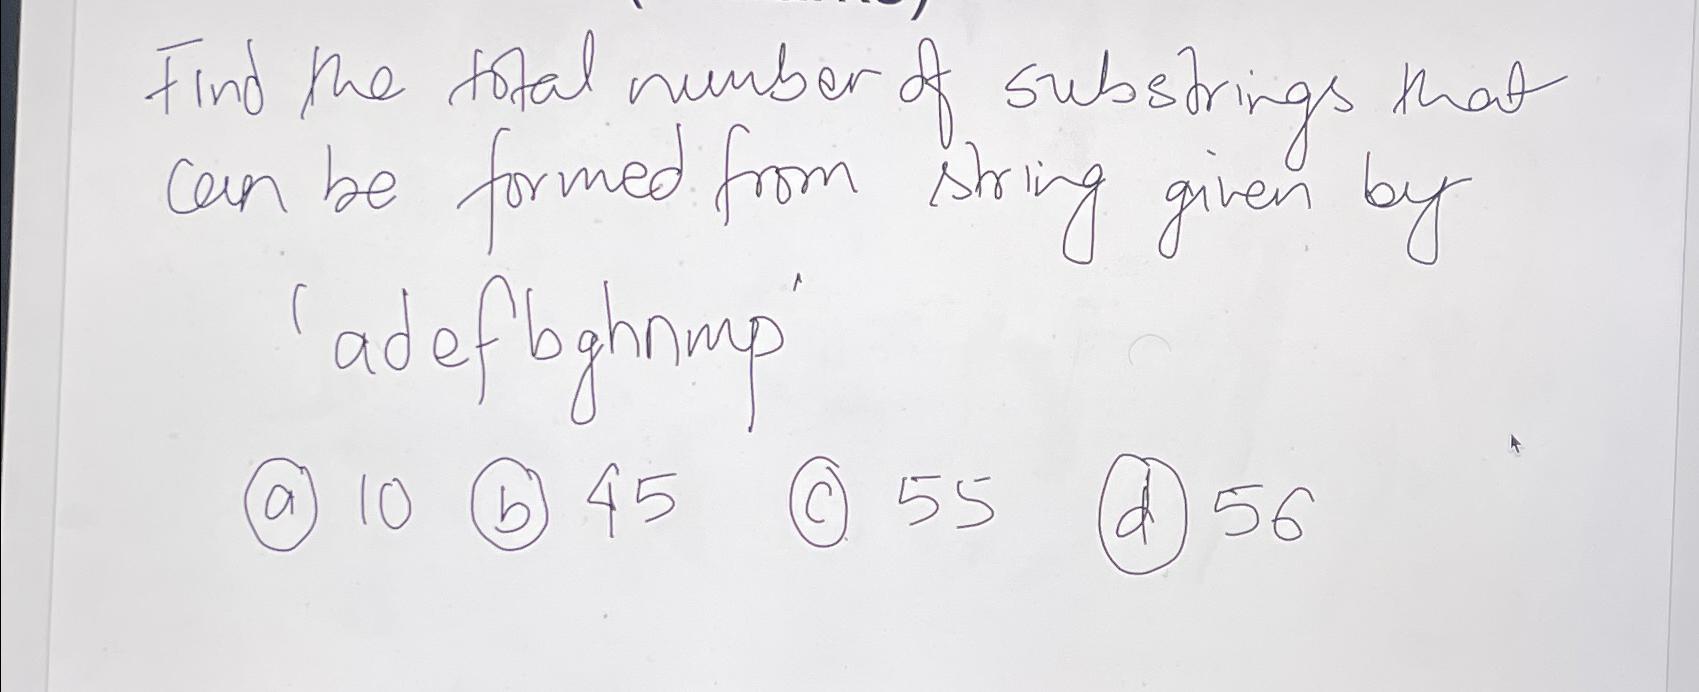 Find the total number of substrings that
can be formed from string given by
'adefbghnmp'
(a) 10 (b) 45 (c) 55 (d) 56